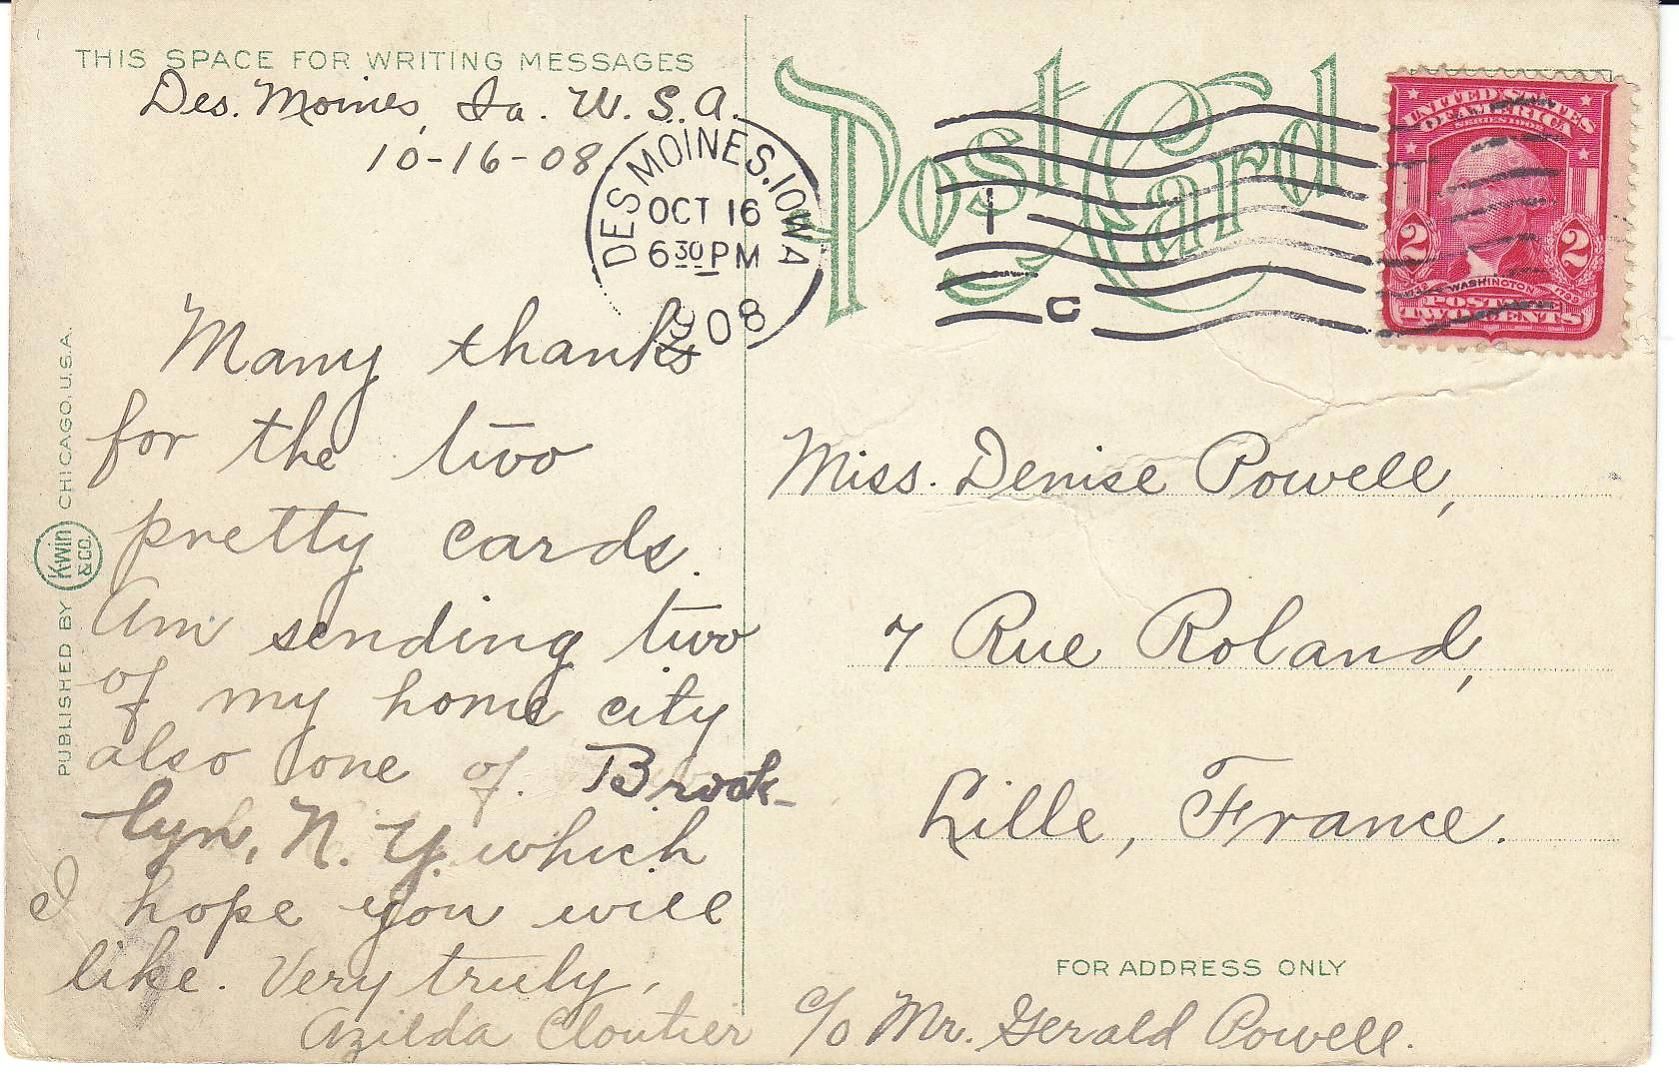 THIS SPACE FOR WRITING MESSAGES
Des. Moines, Ia. U.S.A.
10-16-08
Many thanks
for the two
pretty cards.
Am sending two
of my home city
also one of. Brook-
lyn, N.Y. which
I hope you will
like. Very truly,
Azilda Cloutier
PUBLISHED BY K-WIN & CO. CHICAGO, U.S.A.
Post Card
DES MOINES, IOWA
OCT 16
6 30 PM
08
1
C
UNITED STATES
OF AMERICA
SERIES 1902
2 2
WASHINGTON
POSTAGE
TWO CENTS
Miss. Denise Powell,
7 Rue Roland,
Lille, France.
FOR ADDRESS ONLY
c/o Mr. Gerald Powell.